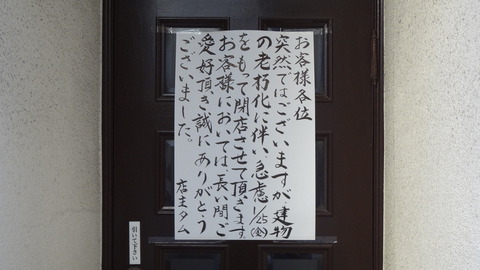 お客様各位
突然ではございますが建物
の老朽化に伴い、急慮1/25(金)
をもって閉店させて頂きます。
お客様においては、長い間ご
愛好頂き誠にありがとう
ございました。
店主タム
引いて下さい